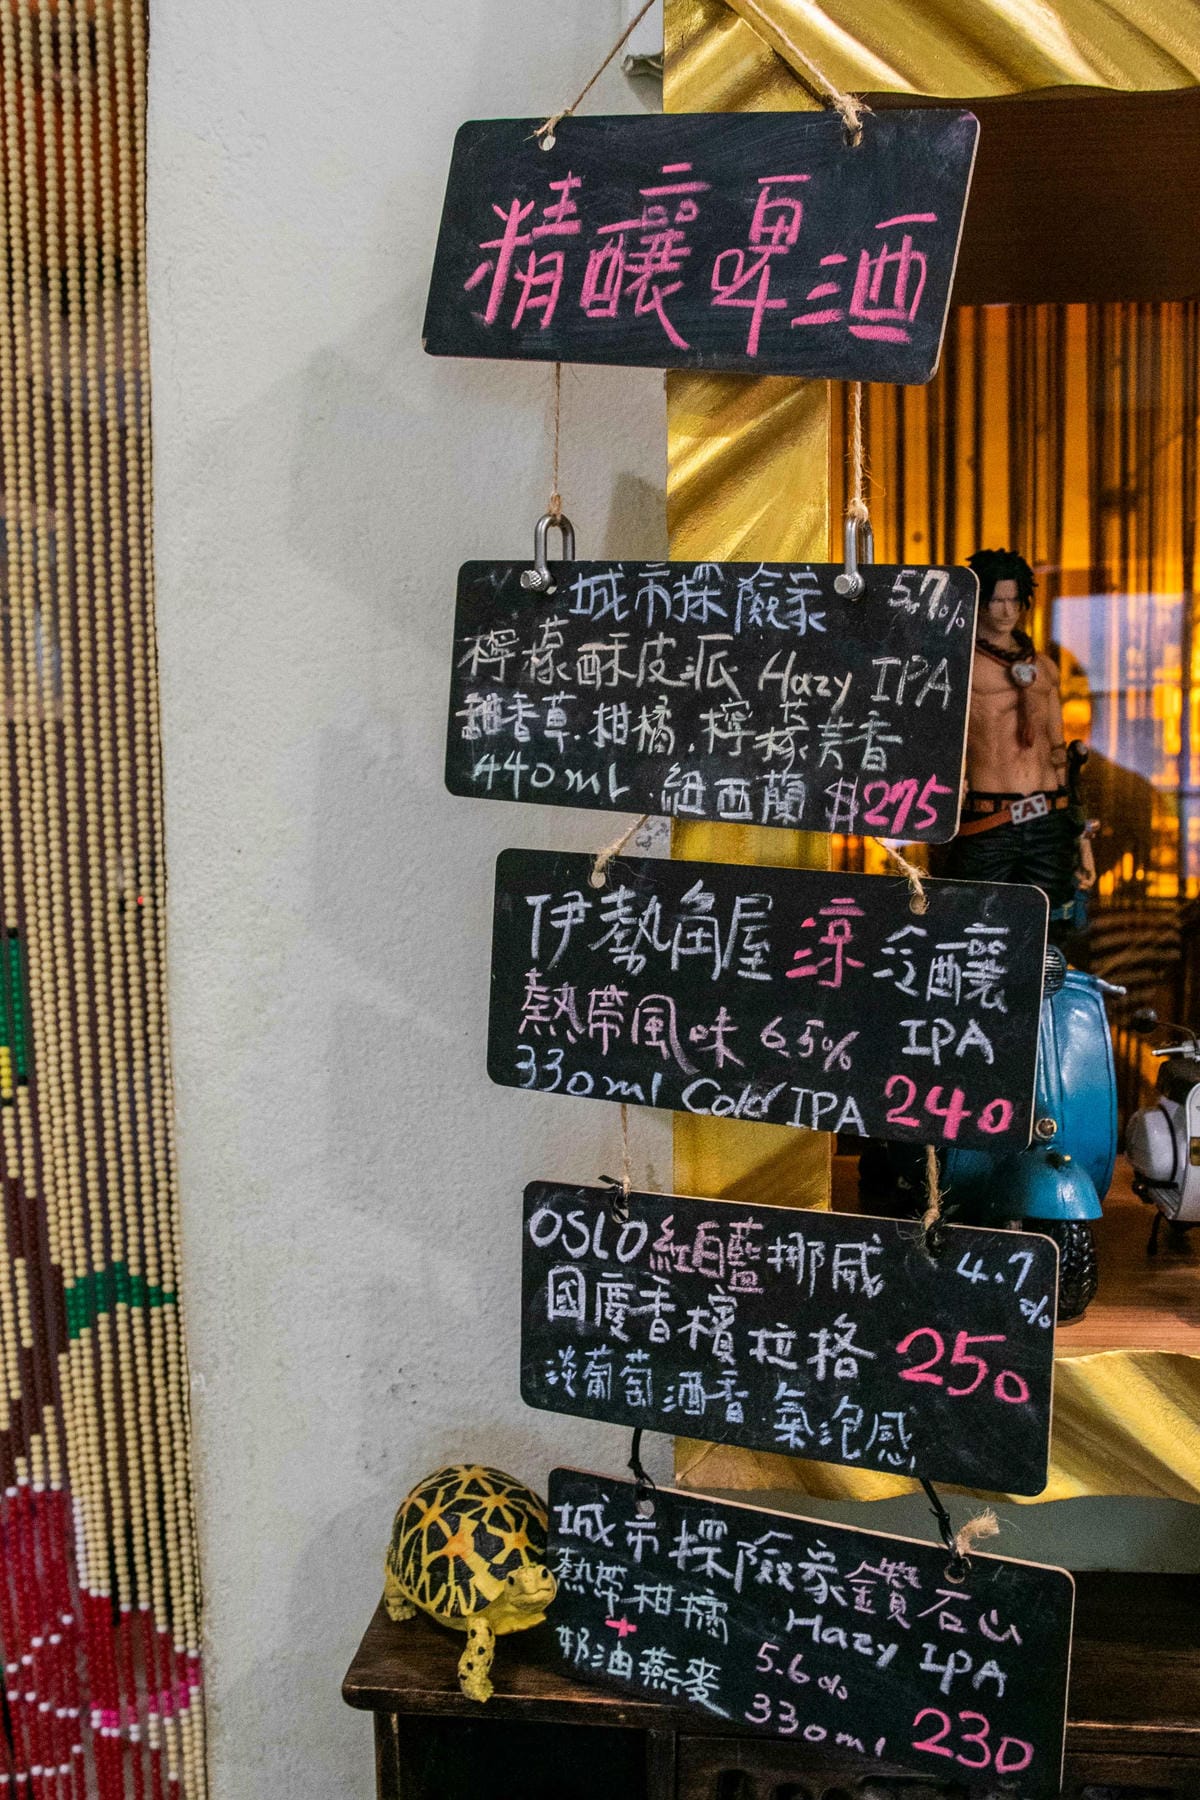 精釀啤酒
城市探險家 5.7%
檸檬酥皮派 Hazy IPA
甜香草.柑橘.檸檬芳香
440ml .紐西蘭 $275
伊勢角屋涼冷釀
熱帶風味 6.5% IPA
330ml Cold IPA 240
OSLO紅白藍挪威 4.7%
國慶香檳拉格 250
淡葡萄酒香.氣泡感
城市探險家鑽石山
熱帶柑橘 Hazy IPA
+
奶油燕麥 5.6%
330ml 230
A